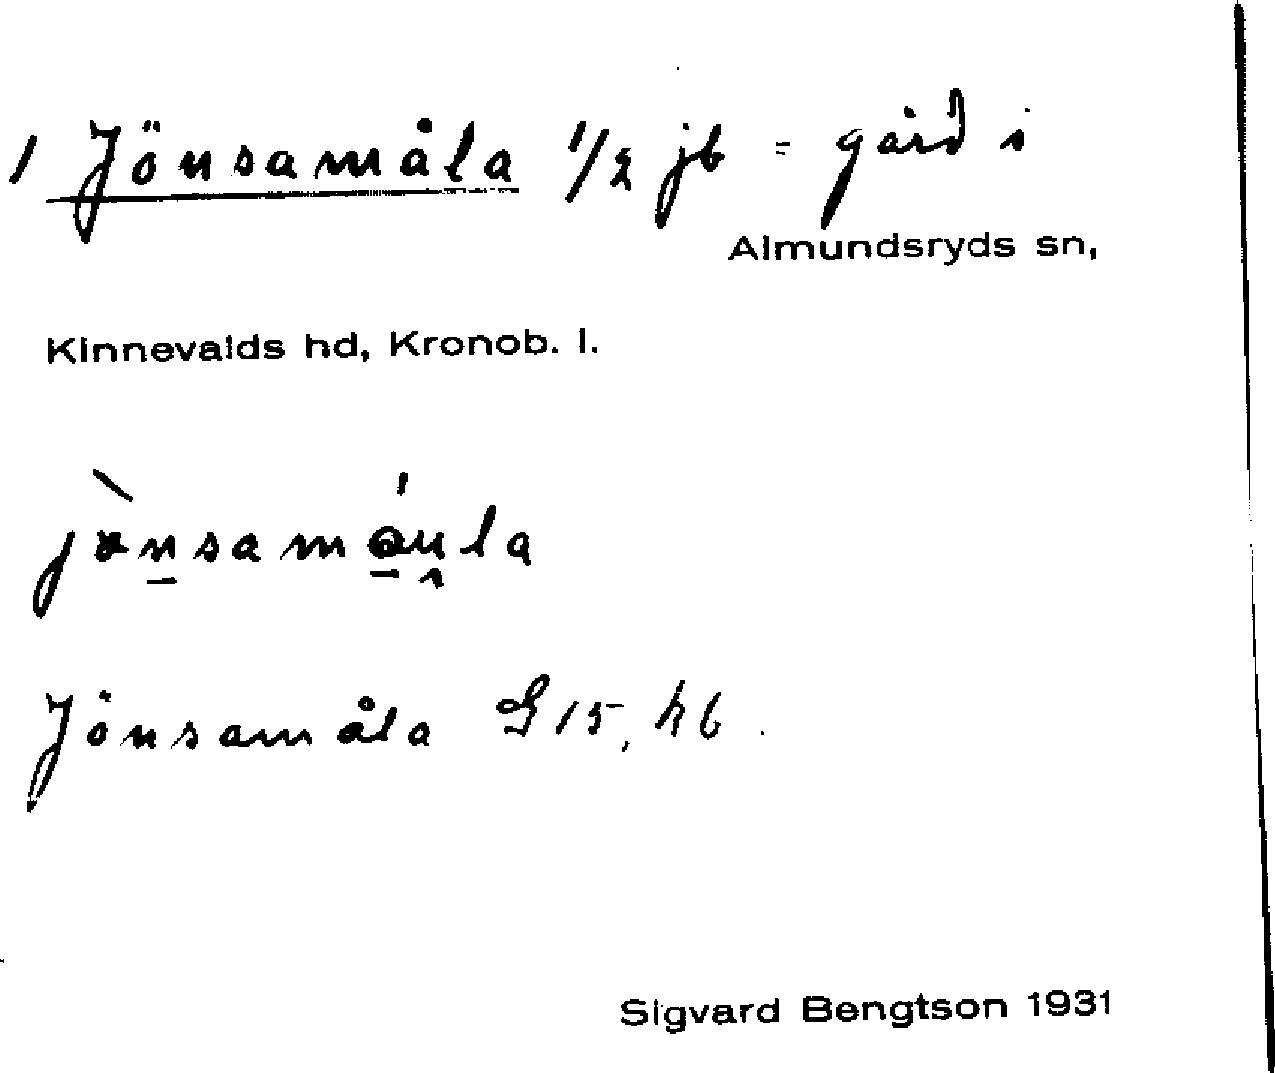 1 Jönsamåla 1/2 jb = gård i
Almundsryds sn,
Kinnevalds hd, Kronob. l.
Jönsamåla G 15, hb.
Sigvard Bengtson 1931